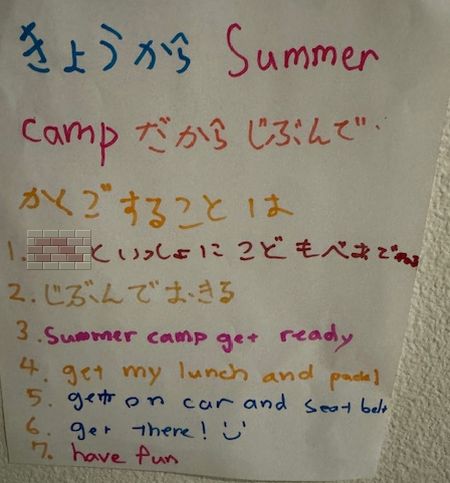 きょうから Summer
camp だから じぶんで
かくごすること は
1. といっしょに こどもべあで
2. じぶんでおきる
3. Summer camp get ready
4. get my lunch and
5. get on car and seat belt
6. get there!
7. have fun